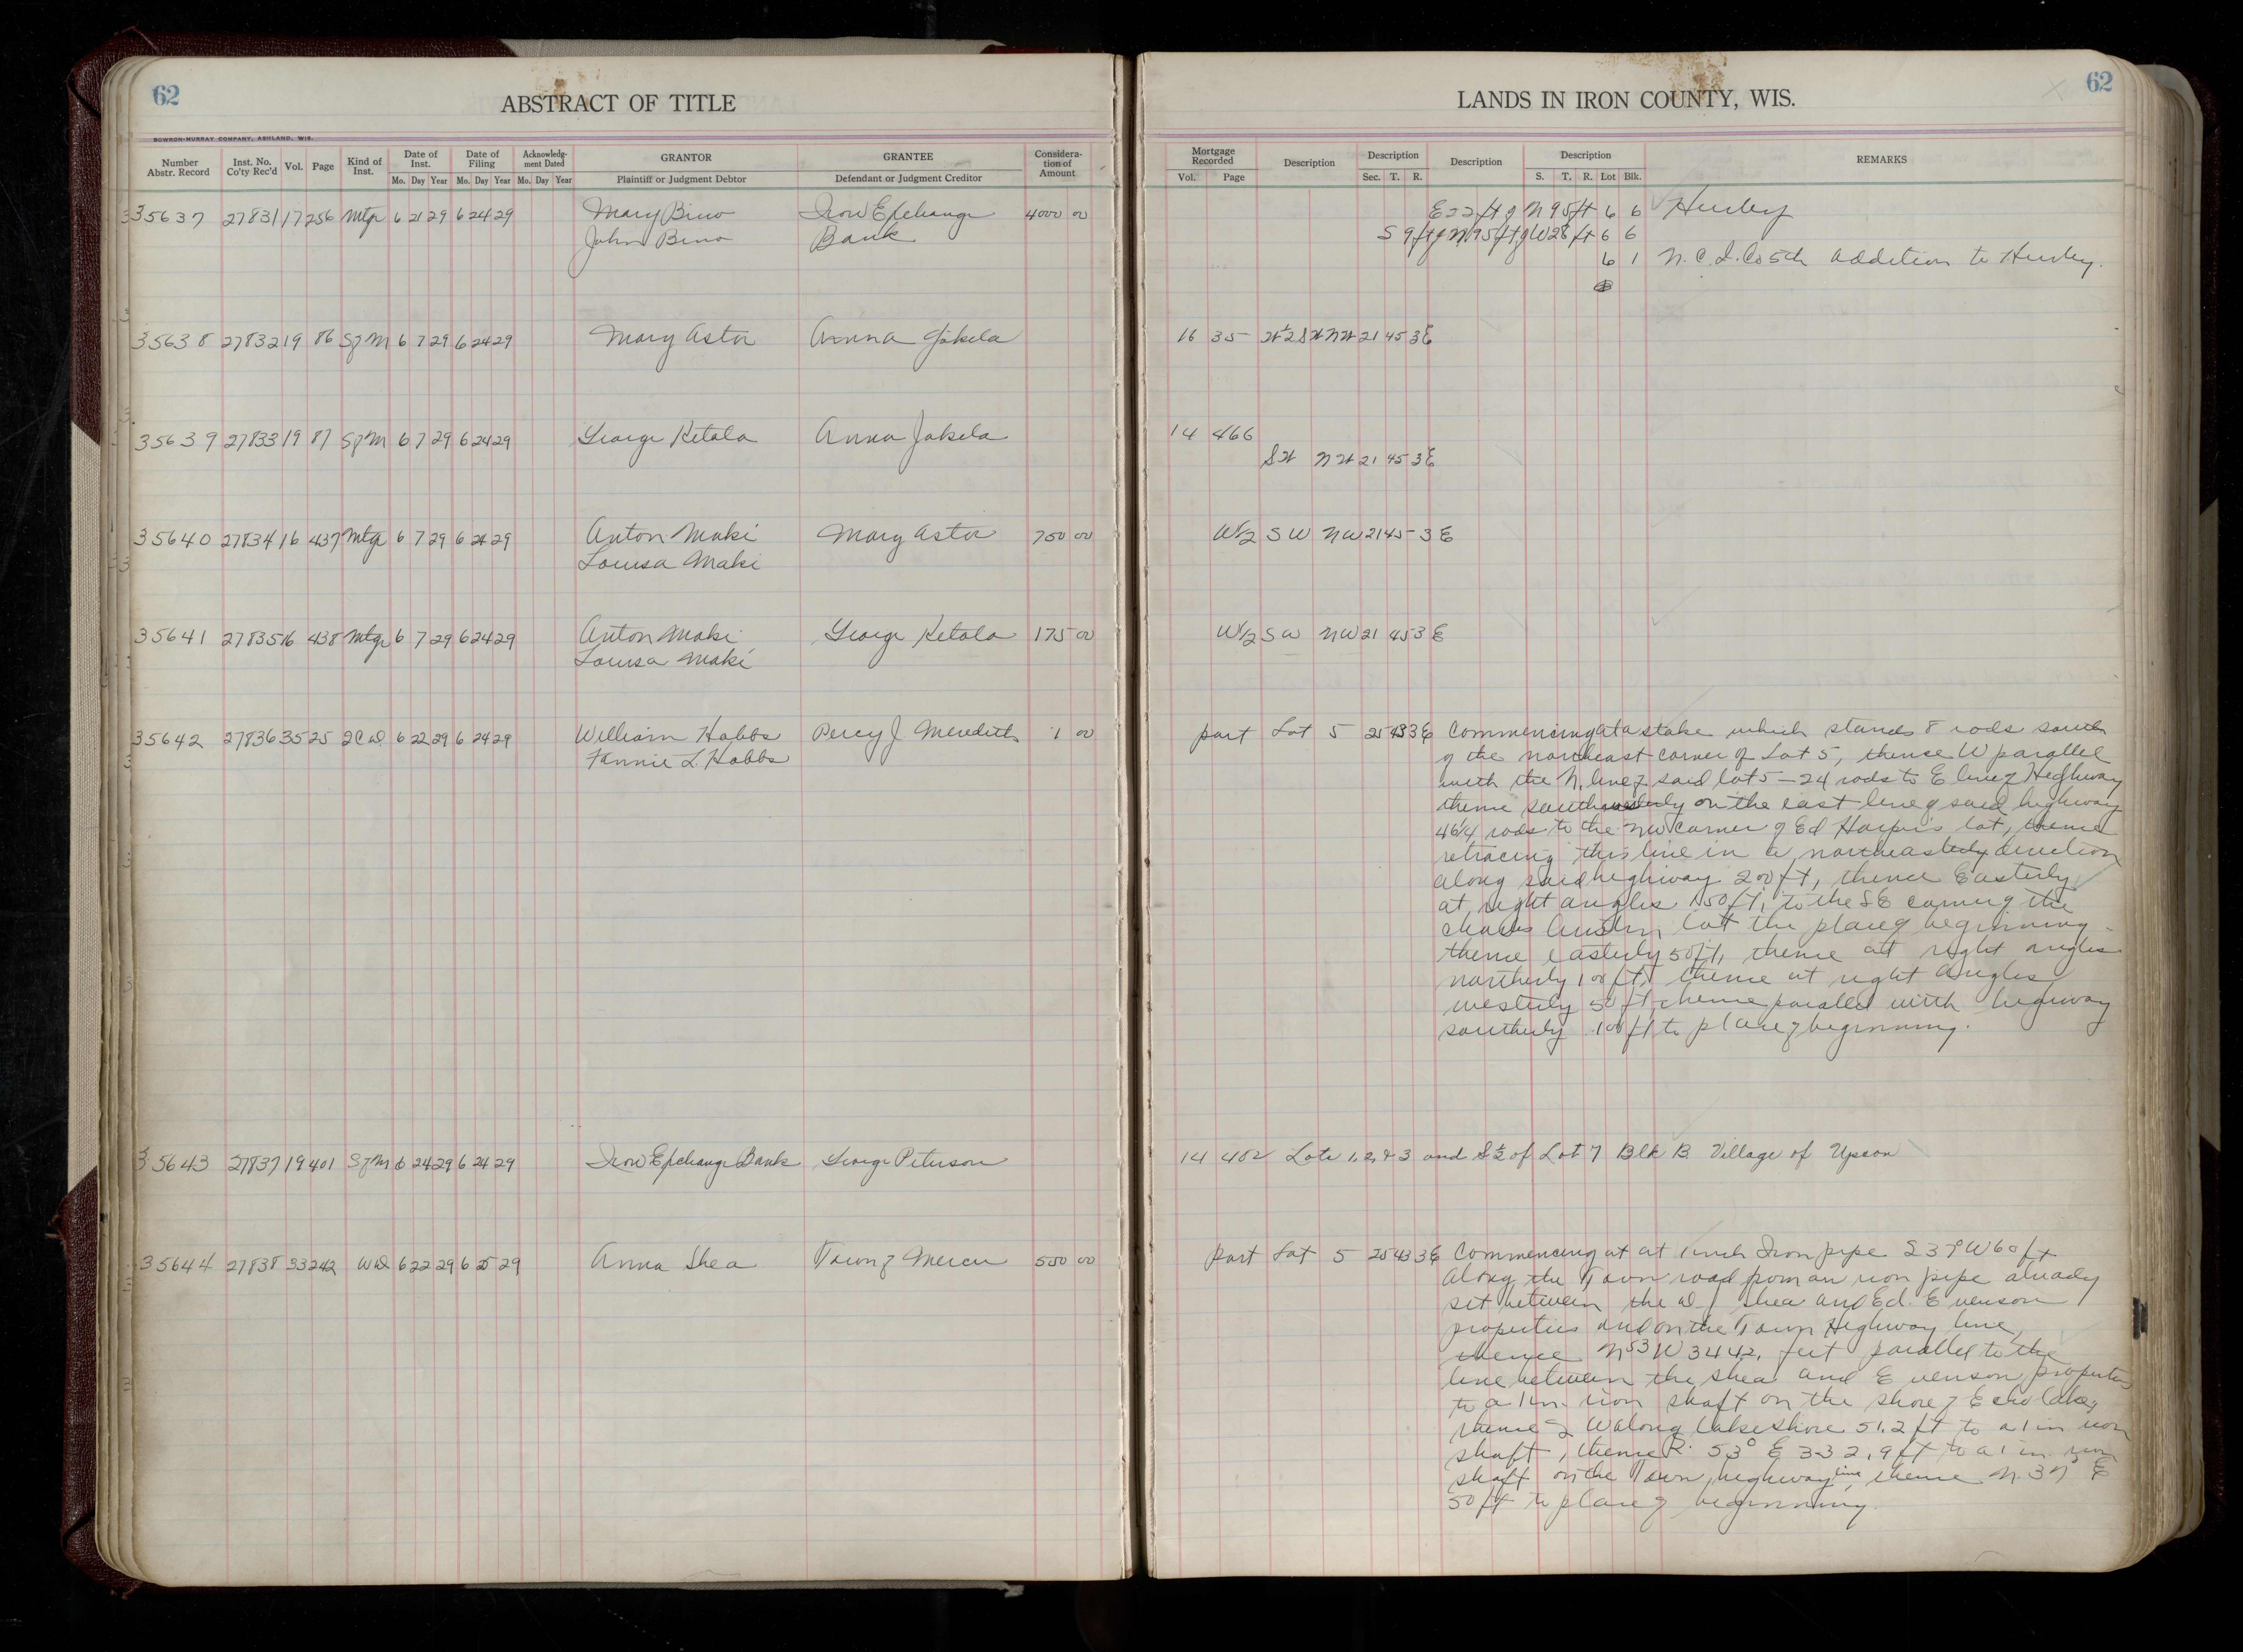 62
ABSTRACT OF TITLE
BOWRON-MURRAY COMPANY, ASHLAND, WIS.
Number Abstr. Record Inst. No. Co'ty Rec'd Vol. Page Kind of Inst. Date of Inst. Date of Filing Acknowledg- ment Dated GRANTOR GRANTEE Considera- tion of Amount
Mo. Day Year Mo. Day Year Mo. Day Year Plaintiff or Judgment Debtor Defendant or Judgment Creditor
35637 27831 17 256 Mtg 6 21 29 6 24 29 Mary Bino Iron Exchange 4000 00
John Bino Bank
35638 27832 19 86 SfM 6 7 29 6 24 29 Mary Astor Anna Jakela
35639 27833 19 87 SfM 6 7 29 6 24 29 George Ketola Anna Jakela
35640 27834 16 437 Mtg 6 7 29 6 24 29 Anton Maki Mary Astor 750 00
Louisa Maki
35641 27835 16 438 Mtg 6 7 29 6 24 29 Anton Maki George Ketola 175 00
Louisa Maki
35642 27836 35 25 QCD 6 22 29 6 24 29 William Hobbs Percy J Meredith 1 00
Fannie L. Hobbs
35643 27837 19 401 SfM 6 24 29 6 24 29 Iron Exchange Bank George Peterson
35644 27838 33 242 WD 6 22 29 6 25 29 Anna Shea Town of Mercer 550 00
62
LANDS IN IRON COUNTY, WIS.
Mortgage Recorded Description Description Description Description REMARKS
Vol. Page Sec. T. R. S. T. R. Lot Blk.
E 22 ft of N 95 ft 6 6 Hurley
S 9 ft of N 95 ft of W 28 ft 6 6
6 1 N.C.I. Co 5th addition to Hurley.
16 35 W½ SW NW 21 45 3E
14 466
SW NW 21 45 3E
W½ SW NW 21 45 3E
W½ SW NW 21 45 3E
part Lot 5 25 43 3E Commencing at a stake which stands 8 rods south
of the northeast corner of Lot 5, thence W parallel
with the N. line of said lot 5 - 24 rods to E line of Highway
thence southwesterly on the east line of said highway
46¼ rods to the NW corner of Ed Harper's lot, thence
retracing this line in a northeasterly direction
along said highway 200 ft, thence Easterly
at right angles 150 ft, to the SE corner of the
Charles Austin lot the place of beginning -
thence easterly 50 ft, thence at right angles
northerly 100 ft, thence at right angles
westerly 50 ft, thence parallel with highway
southerly 100 ft to place of beginning.
14 402 Lots 1, 2, & 3 and S½ of Lot 7 Blk B. Village of Upson
part Lot 5 25 43 3E Commencing at at 1 inch Iron pipe S 37° W 60 ft
along the Town road from an iron pipe already
set between the W J Shea and Ed. Evenson
properties and on the Town Highway line,
thence N 53 W 344.2. feet parallel to the
line between the Shea and Evenson properties
to a 1 in. iron shaft on the shore of Echo lake,
thence S W along lakeshore 51.2 ft to a 1 in iron
shaft, thence 53° E 332.9 ft to a 1 in. iron
shaft on the Town highway line, thence N. 37° E
50 ft to place of beginning.